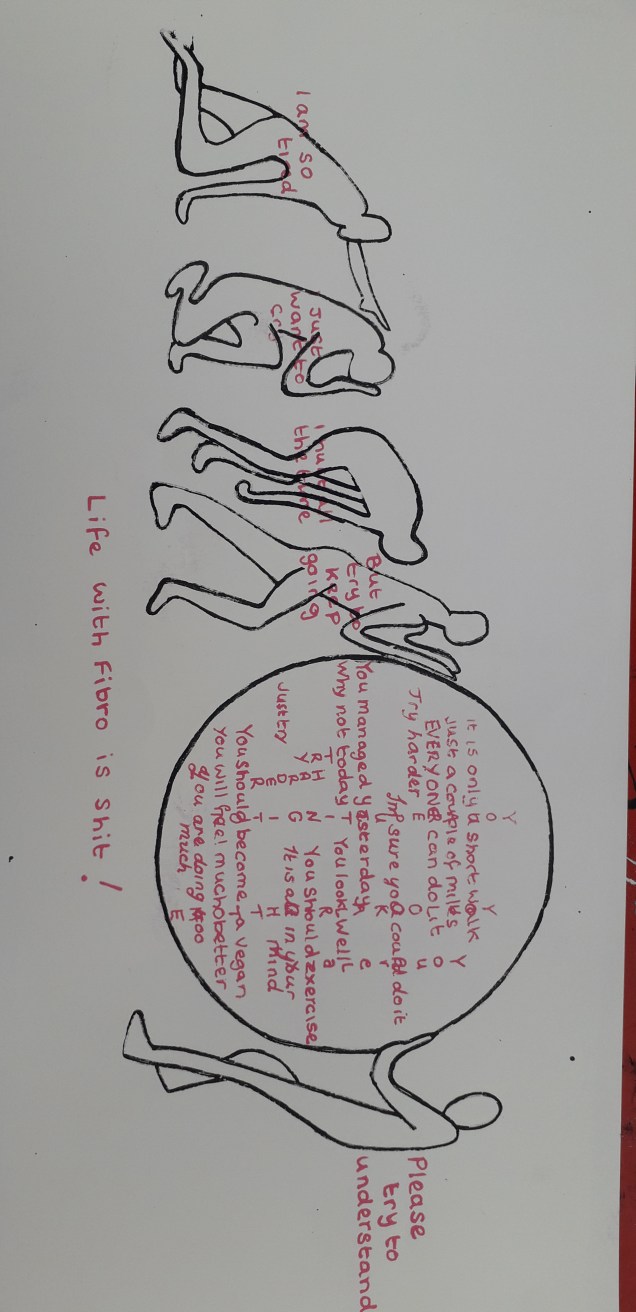 I am so
tired
Just
want to
cry
But
try to
keep
going
it is only a short walk
just a couple of miles
EVERYONE can do it
Try harder
I'm sure you could do it
You managed yesterday
Why not today
You look well
Just try
You should exercise
It is all in your
mind
You should become a vegan
you will feel much better
You are doing too
much
Please
try to
understand
Life with Fibro is shit!